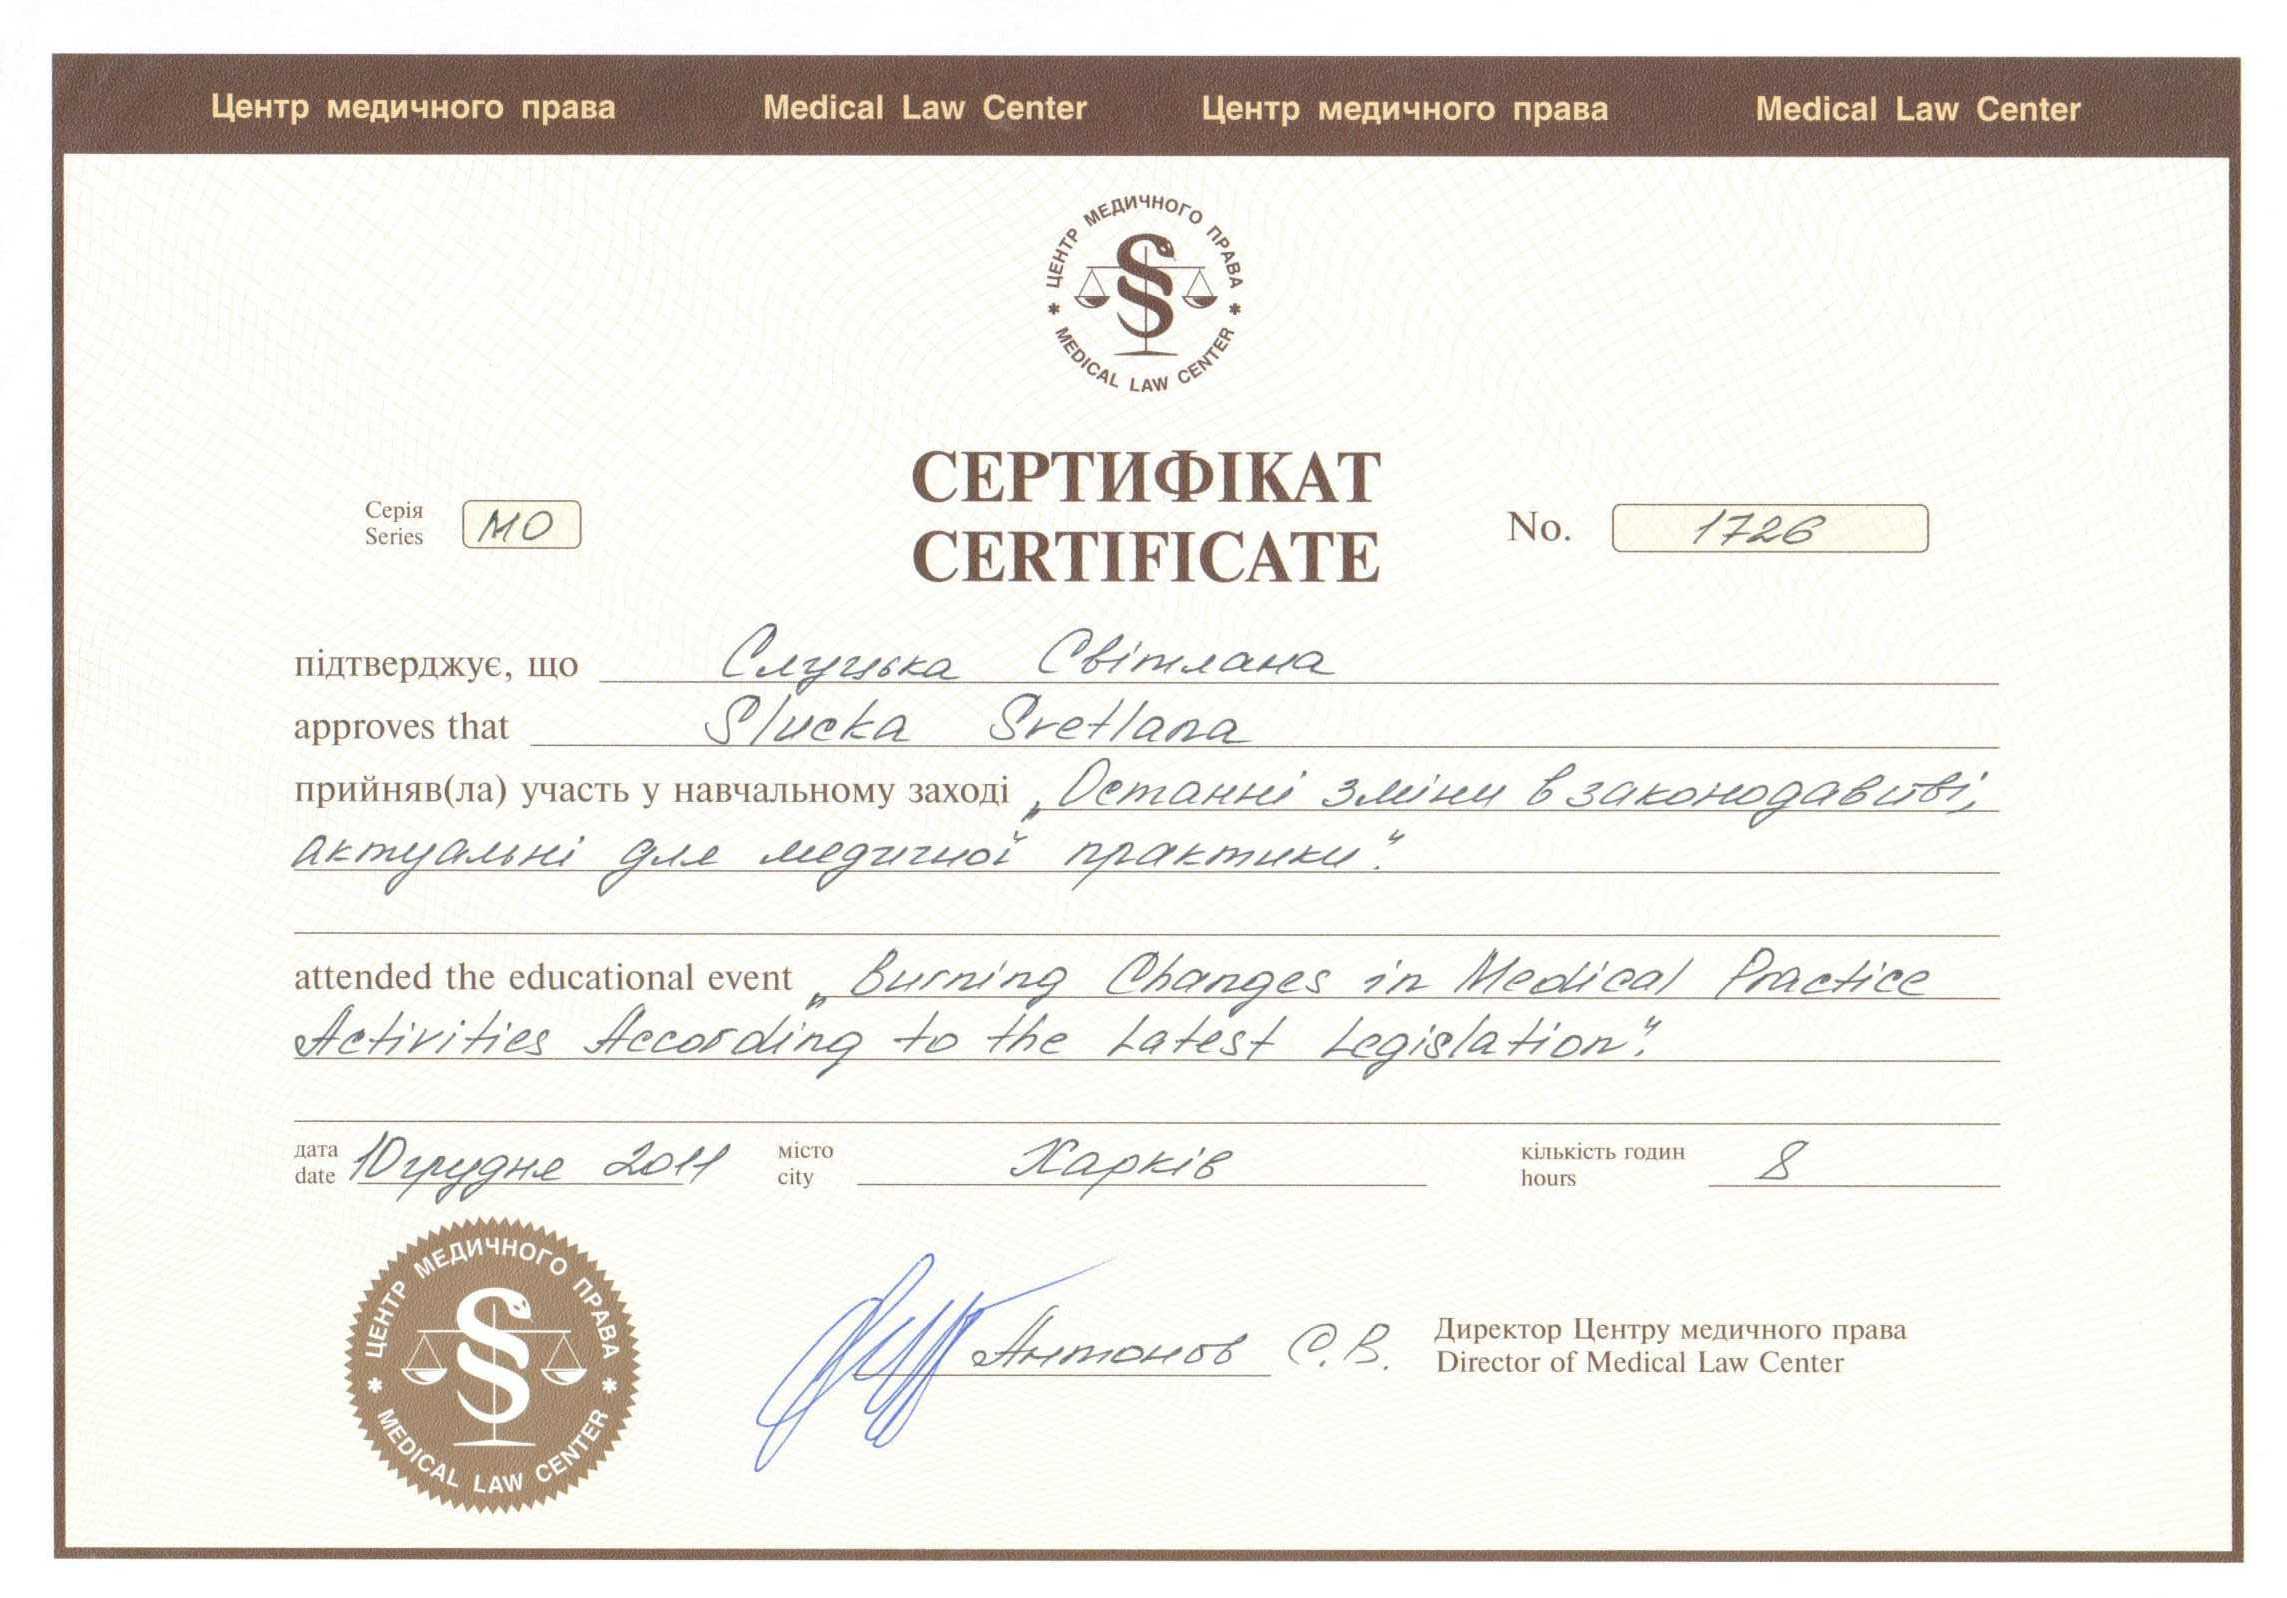 Центр медичного права Medical Law Center Центр медичного права Medical Law Center
ЦЕНТР МЕДИЧНОГО ПРАВА
* MEDICAL LAW CENTER *
СЕРТИФІКАТ
CERTIFICATE
Серія
Series
МО
No. 1726
підтверджує, що Слуцька Світлана
approves that Slucka Svetlana
прийняв(ла) участь у навчальному заході „Останні зміни в законодавстві,
актуальні для медичної практики".
attended the educational event „Burning Changes in Medical Practice
Activities According to the Latest Legislation".
дата
date
10 грудня 2011
місто
city
Харків
кількість годин
hours
8
ЦЕНТР МЕДИЧНОГО ПРАВА
* MEDICAL LAW CENTER *
Антонов С.В.
Директор Центру медичного права
Director of Medical Law Center